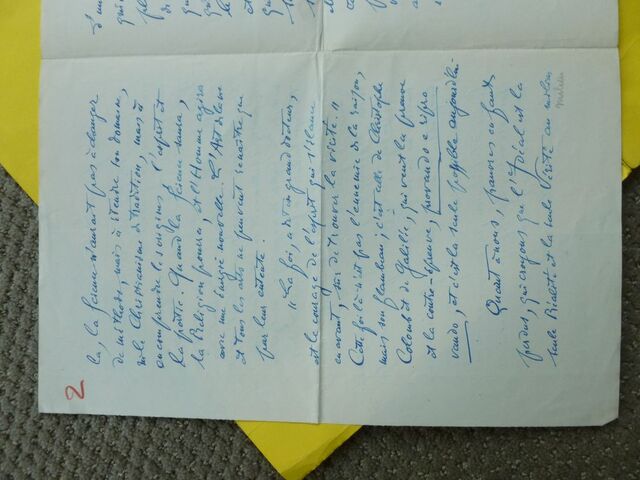 2
là, la femme n'aurait pas à changer
de méthode, mais à étendre son domaine,
ni le Christianisme de tradition, mais à
en comprendre les origines, l'esprit et
la portée. Quand la femme saura,
la Religion pourra, et l'Homme agira
avec une énergie nouvelle. L'Art de la vie
et tous les arts ne peuvent renaître que
par leur entente.
"La foi, dit un grand docteur,
est le courage de l'esprit qui s'élance
en avant, sûr de trouver la vérité."
Cette foi-là n'est pas l'ennemie de la raison,
mais son flambeau; c'est celle de Christophe
Colomb et de Galilée, qui veut la preuve
et la contre-épreuve, provando e ripro
vando, et c'est la seule possible aujourd'hui.
Quant à nous, pauvres enfants
perdus, qui croyons que l'Idéal est la
seule Réalité et la seule Vérité au milieu